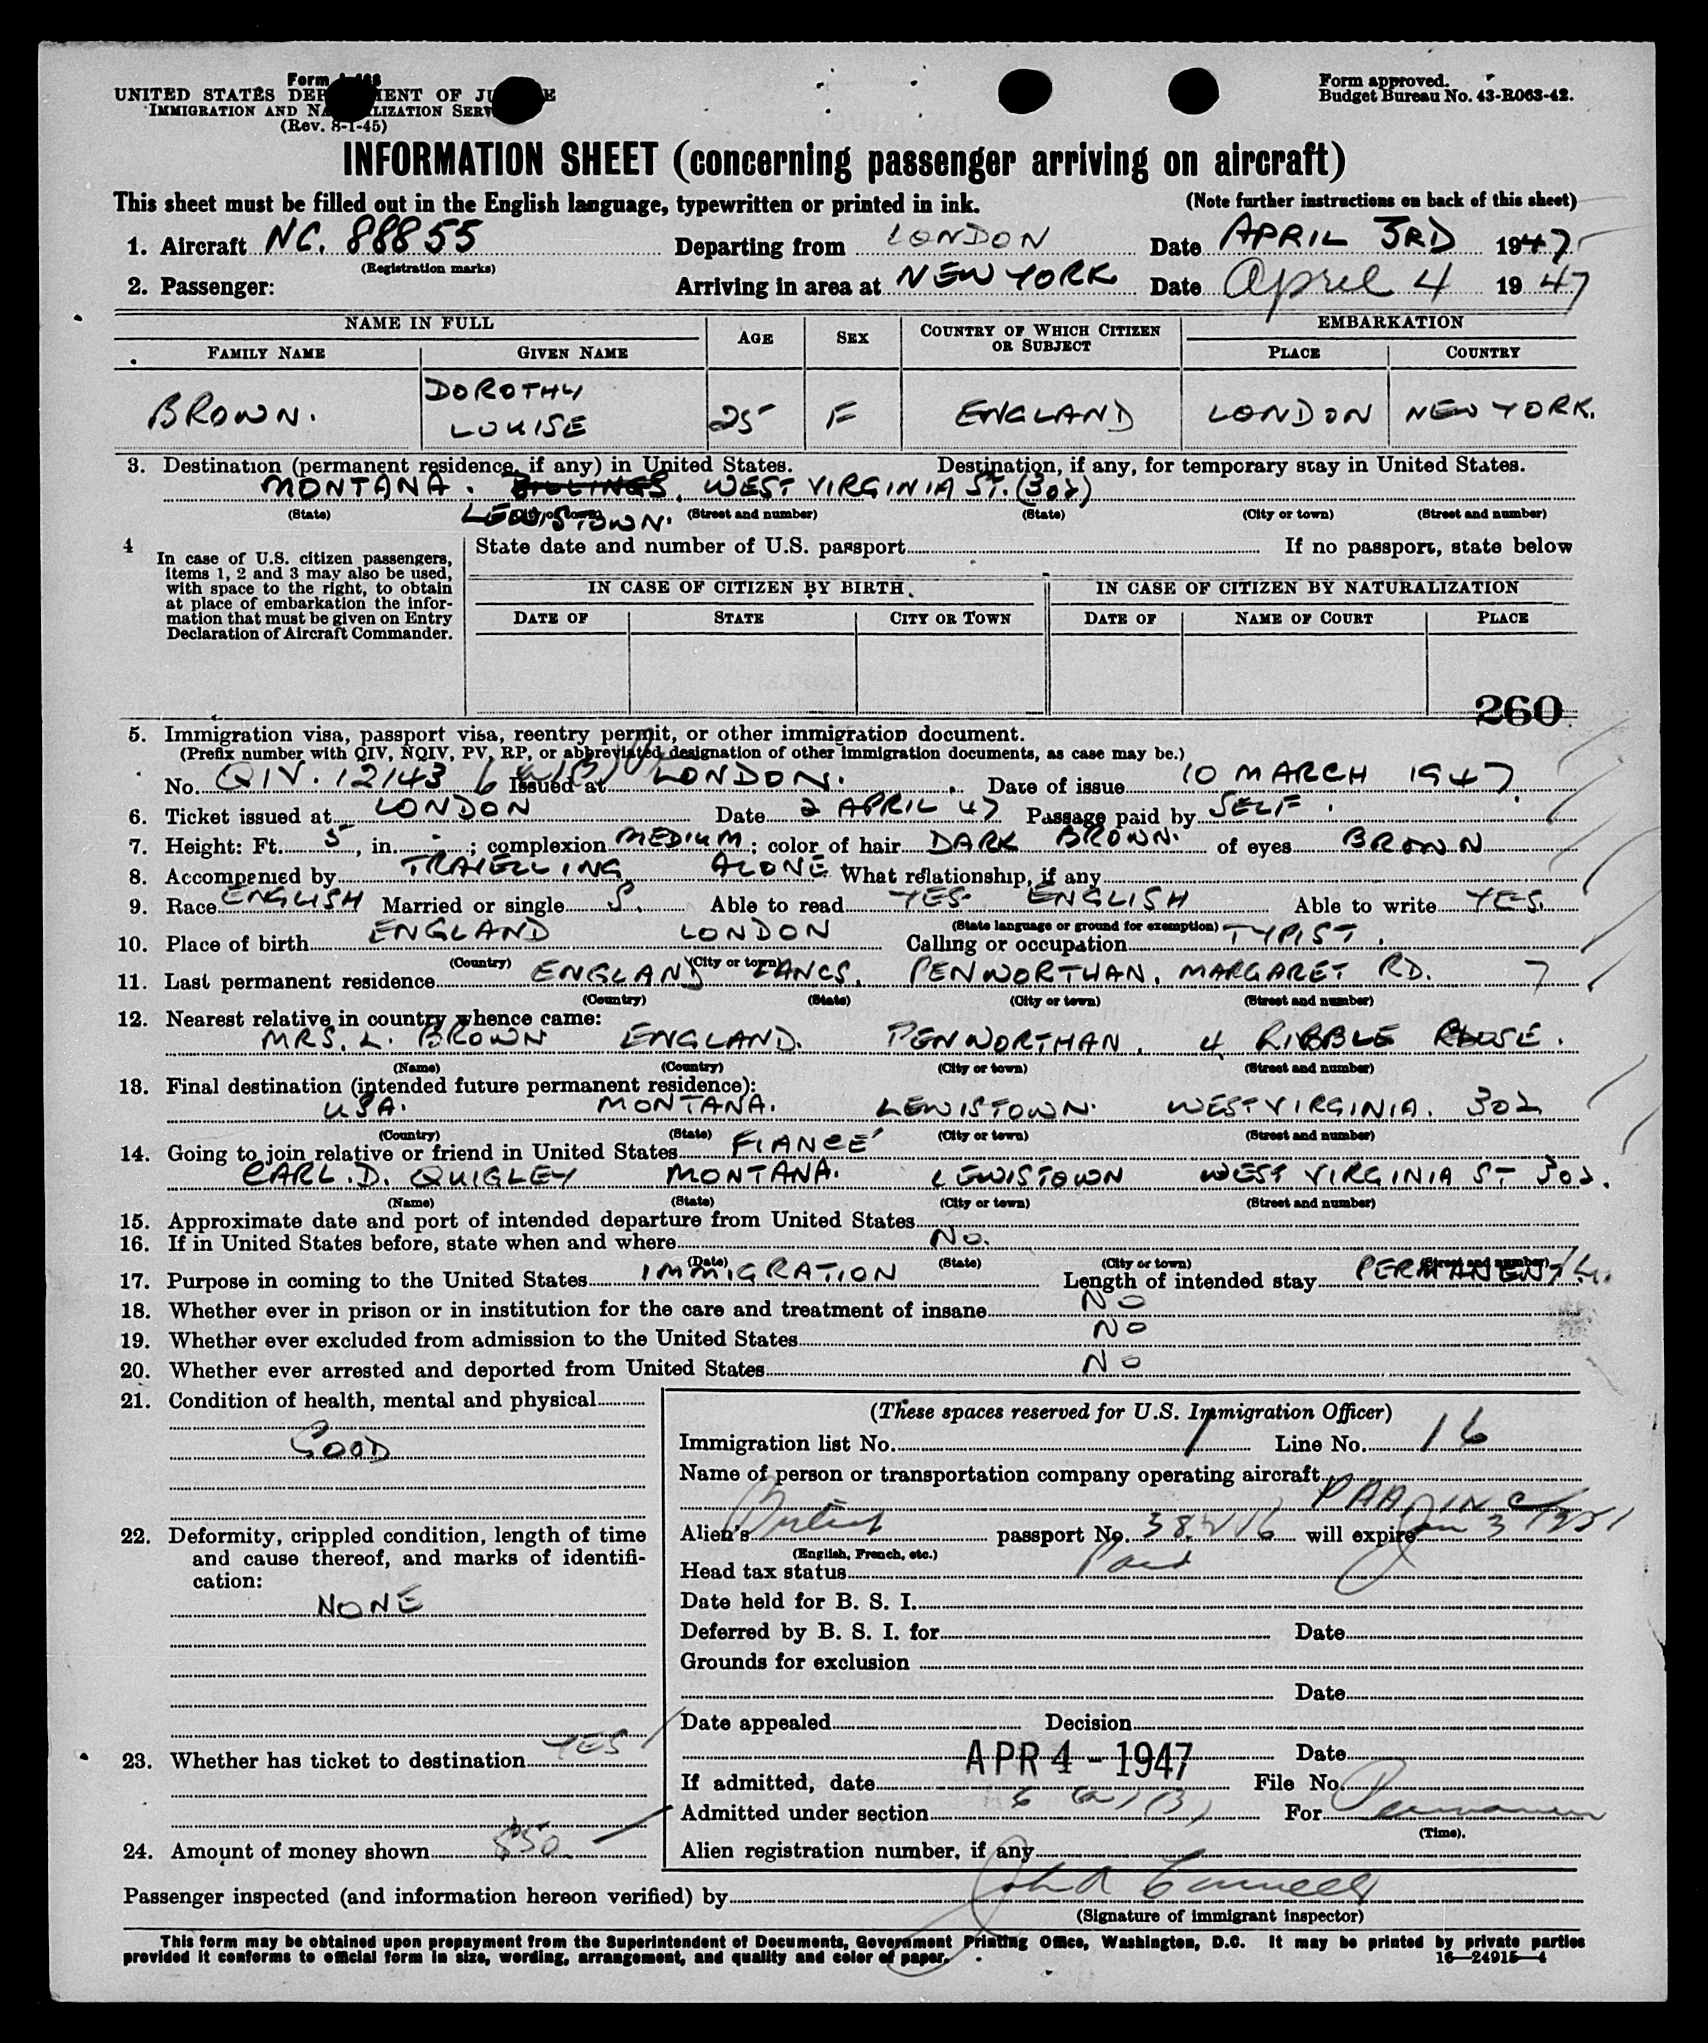 Form
UNITED STATES DEPARTMENT OF JUSTICE
IMMIGRATION AND NATURALIZATION SERVICE
(Rev. 8-1-45)
Form approved.
Budget Bureau No. 43-R063-42.
INFORMATION SHEET (concerning passenger arriving on aircraft)
This sheet must be filled out in the English language, typewritten or printed in ink. (Note further instructions on back of this sheet)
1. Aircraft NC. 88855 Departing from LONDON Date APRIL 3RD 1947
(Registration marks)
2. Passenger: Arriving in area at NEW YORK Date April 4 1947
NAME IN FULL AGE SEX COUNTRY OF WHICH CITIZEN OR SUBJECT EMBARKATION
FAMILY NAME GIVEN NAME PLACE COUNTRY
BROWN. DOROTHY LOUISE 25 F ENGLAND LONDON NEW YORK.
3. Destination (permanent residence, if any) in United States. Destination, if any, for temporary stay in United States.
MONTANA. BILLINGS. WEST VIRGINIA ST. (302)
(State) (City or town) (Street and number) (State) (City or town) (Street and number)
LEWISTOWN.
4 In case of U.S. citizen passengers, items 1, 2 and 3 may also be used, with space to the right, to obtain at place of embarkation the information that must be given on Entry Declaration of Aircraft Commander.
State date and number of U.S. passport If no passport, state below
IN CASE OF CITIZEN BY BIRTH IN CASE OF CITIZEN BY NATURALIZATION
DATE OF STATE CITY OR TOWN DATE OF NAME OF COURT PLACE
260
5. Immigration visa, passport visa, reentry permit, or other immigration document.
(Prefix number with QIV, NQIV, PV, RP, or abbreviated designation of other immigration documents, as case may be.)
No. QIV. 12143 6 (a)(3) Issued at LONDON. Date of issue 10 MARCH 1947.
6. Ticket issued at LONDON Date 2 APRIL 47 Passage paid by SELF.
7. Height: Ft. 5, in. -; complexion MEDIUM; color of hair DARK BROWN. of eyes BROWN
8. Accompenied by TRAVELLING ALONE What relationship, if any
9. Race ENGLISH Married or single S. Able to read YES. ENGLISH Able to write YES.
(State language or ground for exemption)
10. Place of birth ENGLAND LONDON Calling or occupation TYPIST.
(Country) (City or town)
11. Last permanent residence ENGLAND LANCS. PENWORTHAN. MARGARET RD. 7
(Country) (State) (City or town) (Street and number)
12. Nearest relative in country whence came:
MRS. L. BROWN ENGLAND. PENWORTHAN. 4 RIBBLE CLOSE.
(Name) (Country) (City or town) (Street and number)
13. Final destination (intended future permanent residence):
USA. MONTANA. LEWISTOWN. WEST VIRGINIA. 302
(Country) (State) (City or town) (Street and number)
14. Going to join relative or friend in United States FIANCÉ
CARL. D. QUIGLEY MONTANA. LEWISTOWN WEST VIRGINIA ST 302.
(Name) (State) (City or town) (Street and number)
15. Approximate date and port of intended departure from United States
16. If in United States before, state when and where No.
(Date) (State) (City or town) (Street and number)
17. Purpose in coming to the United States IMMIGRATION Length of intended stay PERMANENTLY.
18. Whether ever in prison or in institution for the care and treatment of insane NO
19. Whether ever excluded from admission to the United States NO
20. Whether ever arrested and deported from United States NO
21. Condition of health, mental and physical
GOOD
22. Deformity, crippled condition, length of time and cause thereof, and marks of identification:
NONE
23. Whether has ticket to destination YES
24. Amount of money shown $50
(These spaces reserved for U.S. Immigration Officer)
Immigration list No. 1 Line No. 16
Name of person or transportation company operating aircraft
PAA INC
Alien's British passport No. will expire Jan 3
(English, French, etc.)
Head tax status Paid
Date held for B. S. I.
Deferred by B. S. I. for Date
Grounds for exclusion
Date
Date appealed Decision
Date
If admitted, date APR 4 - 1947 File No.
Admitted under section 6 (a)(3) For Permanent
(Time).
Alien registration number, if any
Passenger inspected (and information hereon verified) by
(Signature of immigrant inspector)
This form may be obtained upon prepayment from the Superintendent of Documents, Government Printing Office, Washington, D.C. It may be printed by private parties
provided it conforms to official form in size, wording, arrangement, and quality and color of paper. 16—24915—4